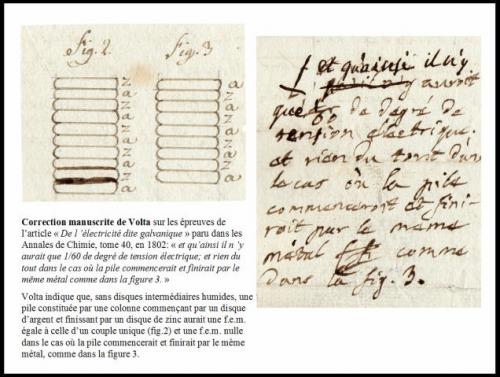 fig. 2
fig. 3
et qu'ainsi il n'y
auroit
que 1/60 de degré de
tension électrique;
et rien du tout dans
le cas où la pile
commenceroit et fini-
roit par le même
métal comme
dans la fig. 3.
Correction manuscrite de Volta sur les épreuves de
l'article « De l 'électricité dite galvanique » paru dans les
Annales de Chimie, tome 40, en 1802: « et qu'ainsi il n 'y
aurait que 1/60 de degré de tension électrique; et rien du
tout dans le cas où la pile commencerait et finirait par le
même métal comme dans la figure 3. »
Volta indique que, sans disques intermédiaires humides, une
pile constituée par une colonne commençant par un disque
d'argent et finissant par un disque de zinc aurait une f.e.m.
égale à celle d'un couple unique (fig.2) et une f.e.m. nulle
dans le cas où la pile commencerait et finirait par le même
métal, comme dans la figure 3.